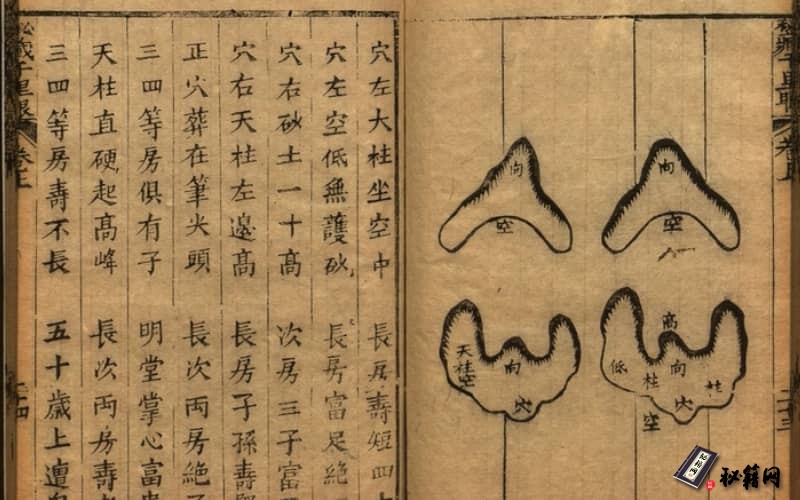 卷上
向
空
向
空
高
低
柱
向
柱
穴
空
天柱空
向
穴
穴左大柱坐空中 長房壽短四
穴左空低無護砂 長房富足絕
穴右砂土一十高 次房三子富
穴右天柱左邊高 長房子孫壽
正穴葬在筆尖頭 長次両房絕
三四等房俱有子 明堂掌心富
天柱直硬起高峰 長次両房壽
三四等房壽不長 五十歲上遭
千里眼 卷上
秘籍网